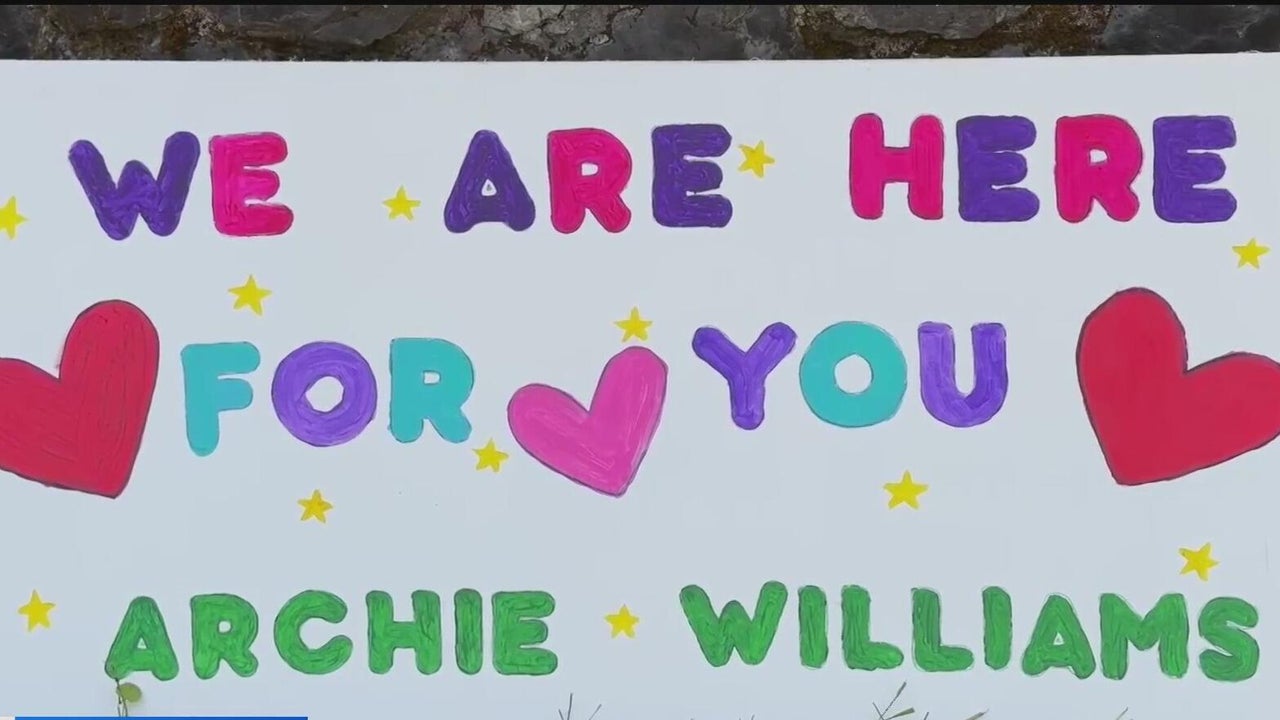 WE ARE HERE
FOR YOU
ARCHIE WILLIAMS